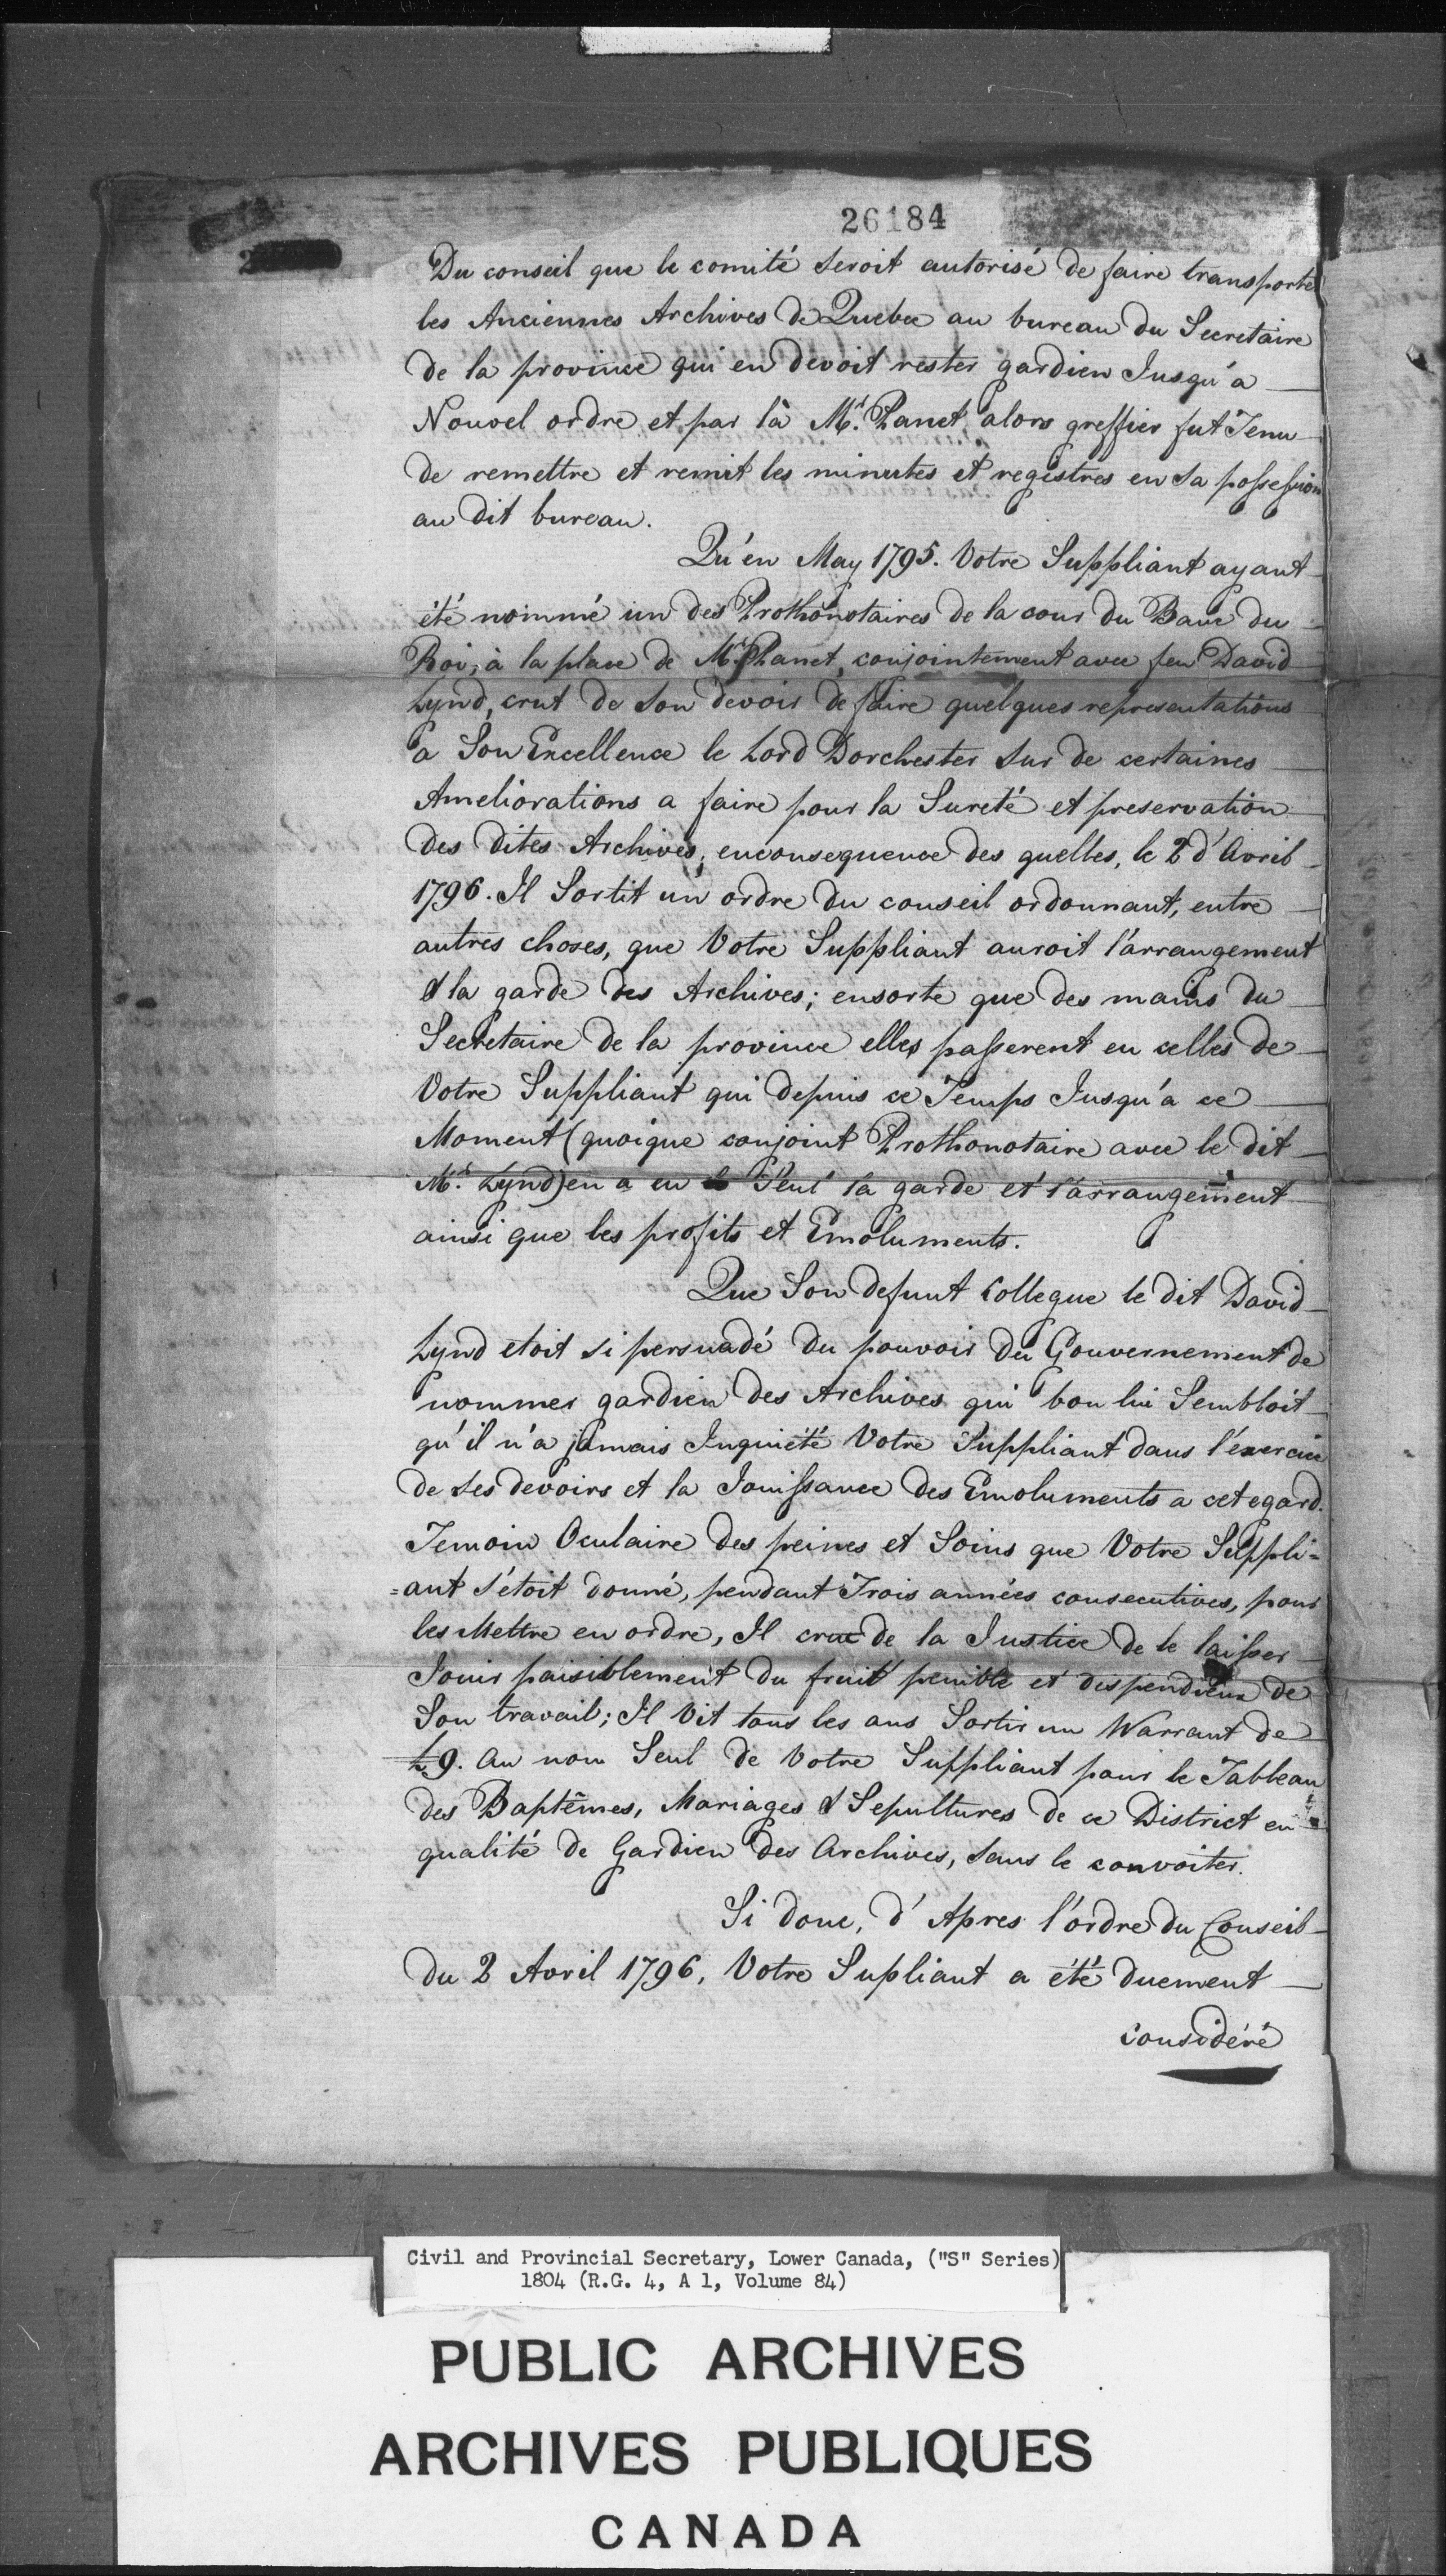 26184
Du conseil que le comité seroit autorisé de faire transporter
les Anciennes Archives de Quebec au bureau du Secretaire
de la province qui en devoit rester gardien Jusqu'a
Nouvel ordre et par là Mr. Panet alors greffier fut Tenu
de remettre et remit les minutes et registres en sa possession
au dit bureau.
Qu'en May 1795. Votre Suppliant ayant
été nommé un des Prothonotaires de la cour du Banc du
Roi, à la place de Mr. Panet, conjointement avec feu David
Lynd, crut de son devoir de faire quelques representations
a Son Excellence le Lord Dorchester sur de certaines
Ameliorations a faire pour la Sureté et preservation
des dites Archives, enconsequence des quelles, le 2 d'Avril
1796. Il Sortit un ordre du conseil ordonnant, entre
autres choses, que Votre Suppliant auroit l'arrangement
& la garde des Archives; ensorte que des mains du
Secretaire de la province elles passerent en celles de
Votre Suppliant qui depuis ce Temps Jusqu'a ce
Moment (quoique conjoint Prothonotaire avec le dit
Mr. Lynd) en a eu Seul la garde et l'arrangement
ainsi que les profits et Emoluments.
Que Son defunt Collegue le dit David
Lynd etoit si persuadé du pouvoir du Gouvernement de
nommer gardien des Archives qui bon lui Sembloit
qu'il n'a jamais Inquiété Votre Suppliant dans l'exercice
de ses devoirs et la Jouissance des Emoluments a cet egard.
Temoin Oculaire des peines et Soins que Votre Suppli=
=ant s'étoit donné, pendant Trois années consecutives, pour
les Mettre en ordre, Il crut de la Justice de le laisser
Jouir paisiblement du fruit penible et dispendieux de
Son travail; Il Vit tous les ans Sortir un Warrant de
£9. au nom Seul de Votre Suppliant pour le Tableau
des Baptêmes, Mariages & Sepultures de ce District en
qualité de Gardien des Archives, sans le convoiter.
Si donc, d'Apres l'ordre du Conseil
du 2 Avril 1796, Votre Supliant a été duement
considéré
Civil and Provincial Secretary, Lower Canada, ("S" Series)
1804 (R.G. 4, A 1, Volume 84)
PUBLIC ARCHIVES
ARCHIVES PUBLIQUES
CANADA